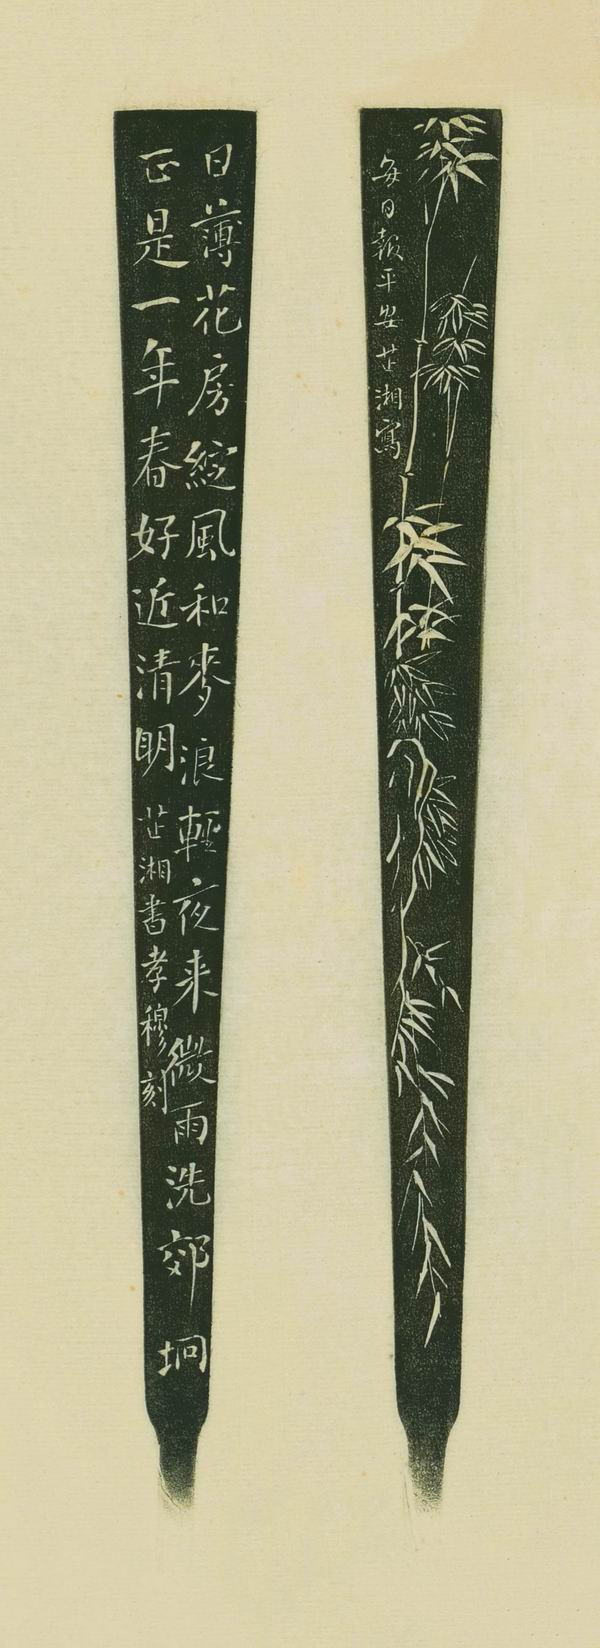 日薄花房綻風和麥浪輕夜来微雨洗郊坰
正是一年春好近清明芷湘書孝穆刻
每日報平安芷湘寫